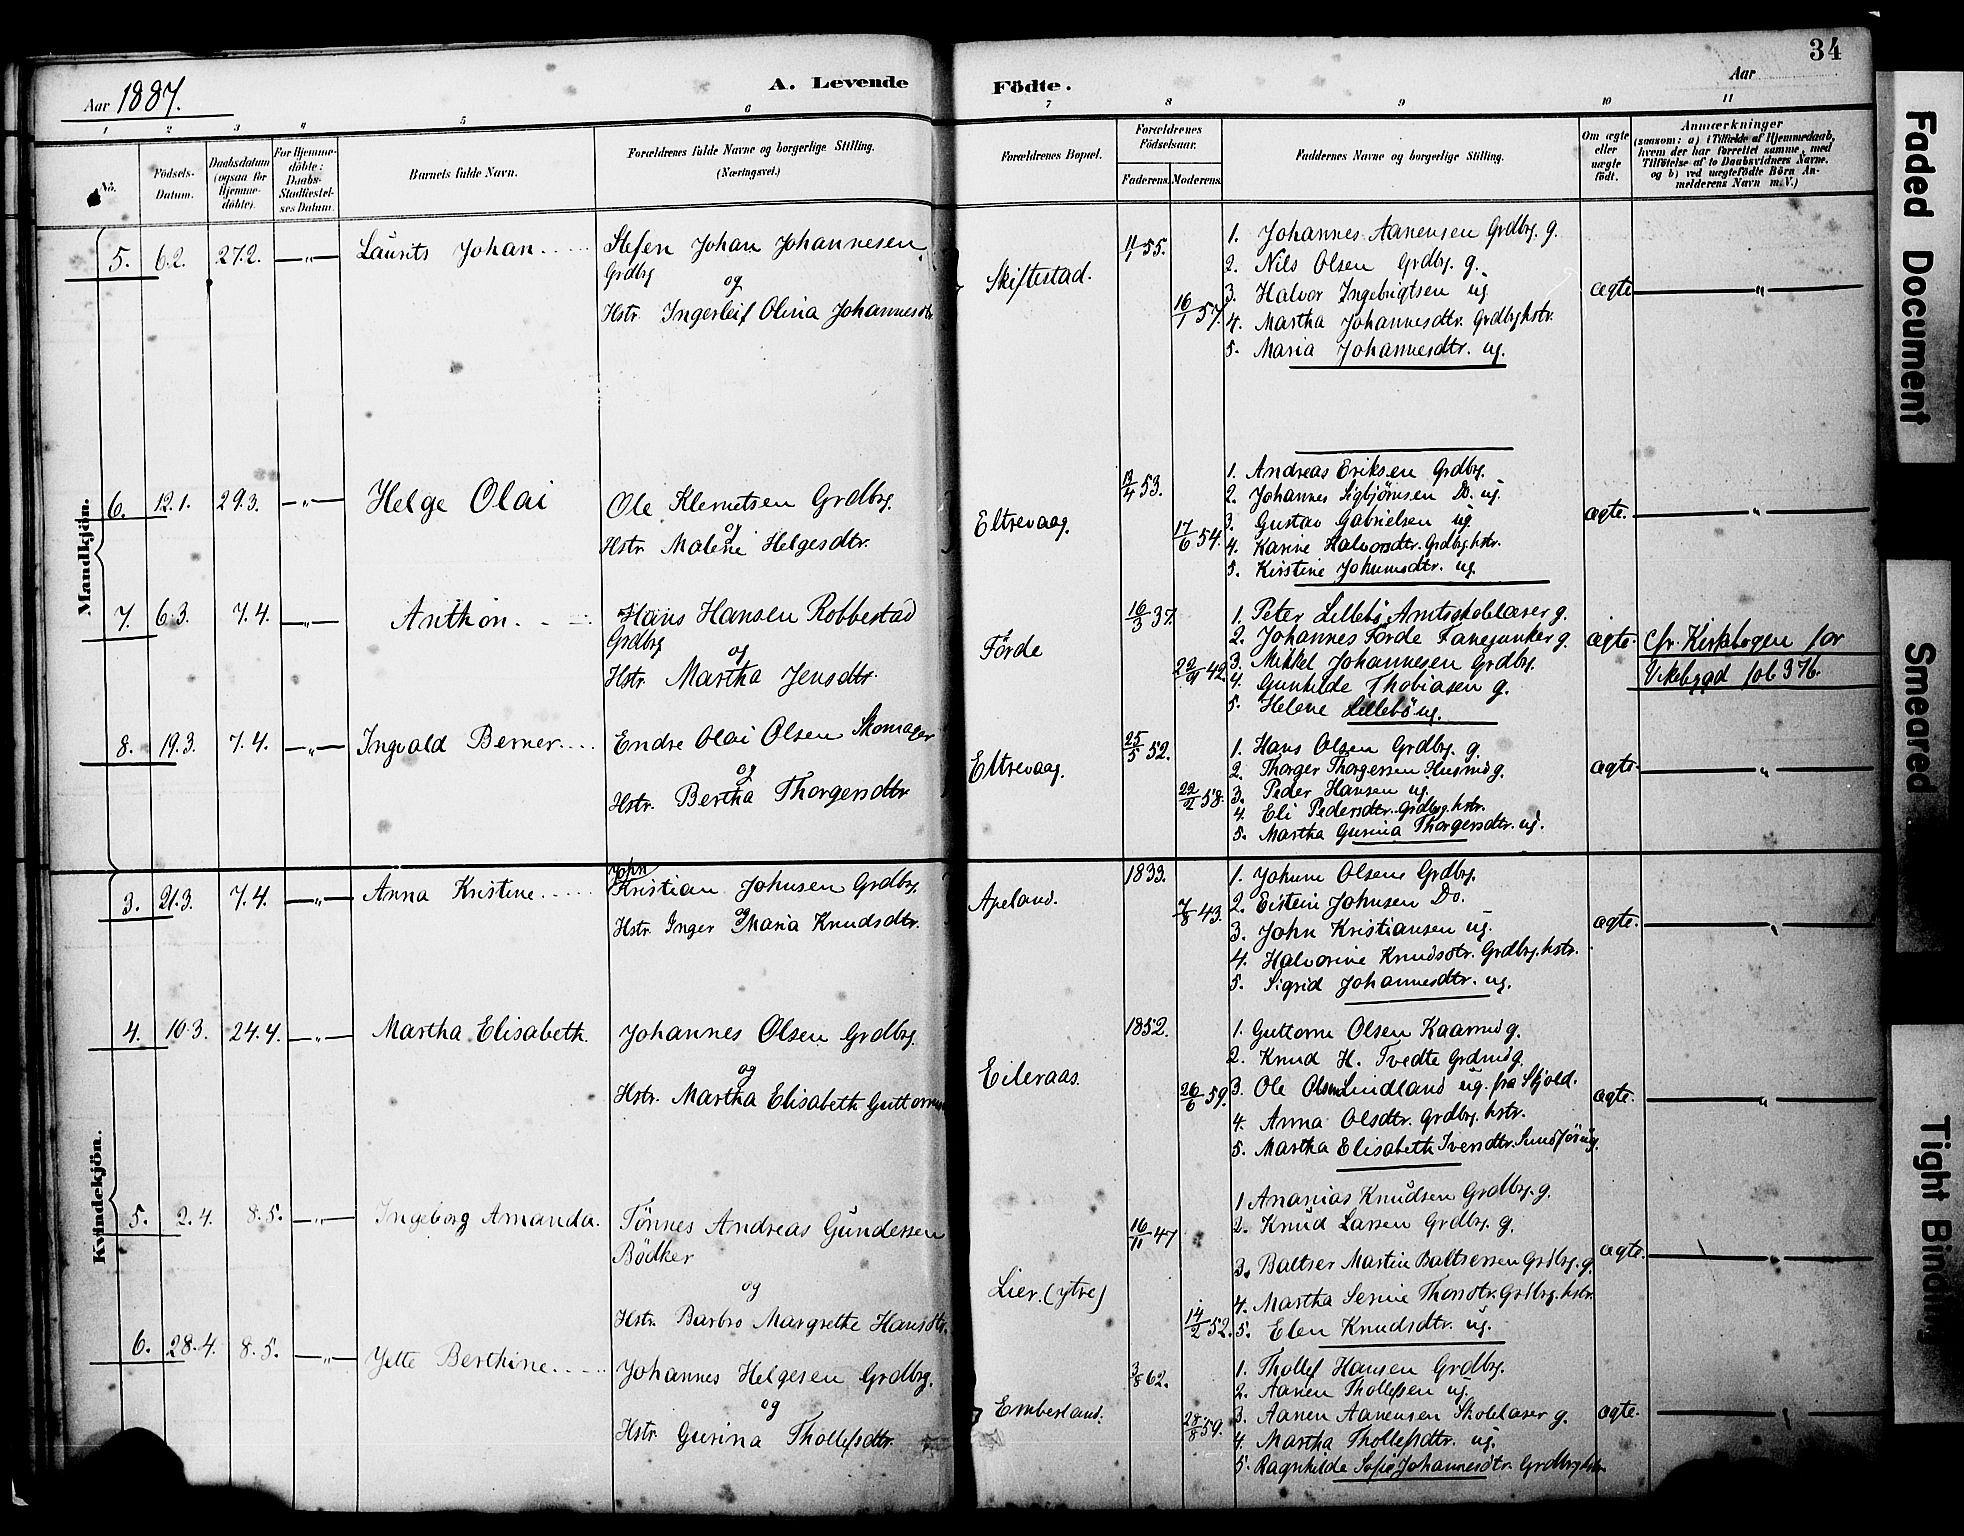 34
Aar 1887.
A. Levende Födte.
Aar
1 2 3 4 5 6 7 8 9 10 11
No.
Födsels-Datum.
Daabsdatum (ogsaa för Hjemme-döbte).
For Hjemme-döbte: Daabs-Stadfæstel-ses Datum.
Barnets fulde Navn.
Forældrenes fulde Navne og borgerlige Stilling.
(Næringsvei.)
Forældrenes Bopæl.
Forældrenes Födselsaar.
Faderens. Moderens.
Faddernes Navne og borgerlige Stilling.
Om ægte eller uægte födt.
Anmærkninger
(saasom: a) i Tilfælde af Hjemmedaab,
hvem der har forrettet samme, med
Tilföielse af to Daabsvidners Navne,
og b) ved uægtefödte Börn An-
melderens Navn m. V.)
Mandkjön.
5. 6.2. 27.2. —„— Laurits Johan
Stefen Johan Johannesen
Grdbrg
og
Hstr. Ingerleif Olina Johannesdtr.
Skiftestad.
4/1 55.
16/1 57.
1. Johannes Aanensen Grdbrg. g.
2. Nils Olsen Grdbrg. g.
3. Halvor Ingebrigtsen ug.
4. Martha Johannesdtr. Grdbrghstr.
5. Maria Johannesdtr. ug.
ægte — „ —
6. 12.1. 29.3. —„— Helge Olai
Ole Klemetsen Grdbrg.
og
Hstr. Malene Helgesdtr.
Eltrevaag.
13/4 53.
17/6 54.
1. Andreas Eriksen Grdbrg.
2. Johannes Sigbjörnsen Do. ug.
3. Gustav Gabrielsen ug.
4. Karine Halvorsdtr. Grdbrg.hstr.
5. Kirstine Johannesdtr. ug.
ægte. — „ —
7. 6.3. 7.4. —„— Anthon.
Hans Hansen Robbestad
Grdbrg
og
Hstr. Martha Jensdtr.
Förde
16/3 37.
22/9 42.
1. Peter Lillebö Amtsskolelærer g.
2. Johannes Förde Fanejunker g.
3. Mikkel Johannesen Grdbrg.
4. Gunhilde Thobiasen g.
5. Helene Lillebö ug.
ægte. Cfr. Kirkebogen for
Vikebygd fol. 376.
8. 19.3. 7.4. —„— Ingvald Berner
Endre Olai Olsen Skomager
og
Hstr. Bertha Thorgersdtr
Eltrevaag.
25/5 52.
22/2 58.
1. Hans Olsen Grdbrg. g.
2. Thorger Thorgersen Husmd g.
3. Peder Hansen ug.
4. Eli Pedersdtr. Grdbrg.hstr.
5. Martha Gurina Thorgersdtr. ug.
ægte. — „ —
Kvindekjön.
3. 21.3. 7.4. —„— Anna Kristine
John
Kristian Johnsen Grdbrg.
og
Hstr. Inger Maria Knudsdtr.
Apeland.
1833.
7/8 43.
1. Johan Olsen Grdbrg.
2. Eistein Johnsen Do.
3. John Kristiansen ug.
4. Halvorine Knudsdtr. Grdbrg.hstr.
5. Sigrid Johannesdtr. ug.
ægte. — „ —
4. 10.3. 24.4. —„— Martha Elisabeth.
Johannes Olsen Grdbrg.
og
Hstr. Martha Elisabeth Guttorms
Eileraas.
1852.
26/6 59.
1. Guttorm Olsen Kaarmd g.
2. Knud H. Tvedte Grdmd g.
3. Ole Olsen Lindland ug. fra Skjold.
4. Anna Olsdtr. Grdbrg. hstr.
5. Martha Elisabeth Iversdtr. Sundför ug.
ægte. — „ —
5. 2.4. 8.5. —„— Ingeborg Amanda.
Tönnes Andreas Gundersen
Bödker
og
Hstr. Barbro Margrethe Hansdtr.
Lier. (ytre)
16/11 47
14/2 52.
1 Ananias Knudsen Grdbrg. g.
2. Knud Larsen Grdbrg. g.
3. Baltser Martin Baltsersen Grdbrg. g.
4. Martha Serine Thorsdtr. Grdbrg. hstr.
5. Elen Knudsdtr. ug.
ægte. — „ —
6. 28.4. 8.5. —„— Jette Berthine
Johannes Helgesen Grdbrg.
og
Hstr. Gurina Thollefsdtr.
Emberland.
3/8 62.
28/8 59.
1. Thollef Hansen Grdbrg.
2. Aanen Thollefsen ug.
3. Aanen Aanensen Skolelærer g.
4. Martha Thollefsdtr. ug.
5. Ragnhilde Sofie Johannesdtr. Grdbrg hstr.
ægte. — „ —
Faded Document
Smeared
Tight Binding